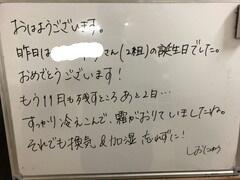 おはようございます。
昨日は さん(2組)の誕生日でした。
おめでとうございます!
もう11月も残すところあと2日…
すっかり冷えこんで、霜がおりていましたね。
それでも換気&加湿 忘れずに!